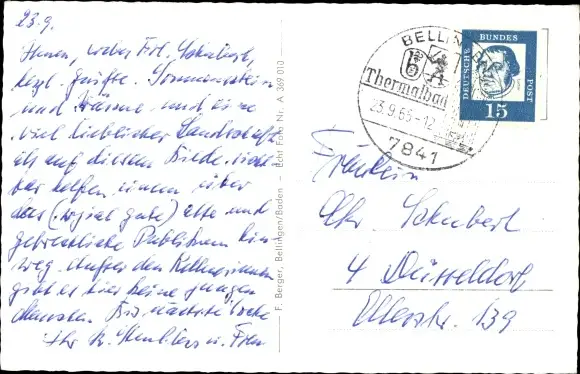 23.9.
Ihnen, liebes Frl. Schubert,
herzl. Grüße. Sonnenschein
und Wärme und eine
viel lieblichere Landschaft
als auf diesem Bilde
helfen einem über
das (sozial gute) alte und
gebrechliche Publikum hin-
weg. Außer den Kellnerinnen
gibt es hier keine jungen
Menschen. Bis nächste Woche
Ihr u. Frau
F. Berger, Bellingen/Baden - Foto Nr. A 369 010
BELLINGEN
Thermalbad
23.9.65-12
7841
DEUTSCHE BUNDESPOST
15
Fräulein
Schubert
4 Düsseldorf
Ellerstr. 139